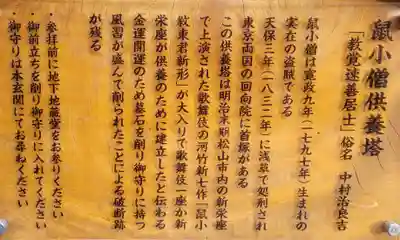 鼠小僧供養塔
「教覚速善居士」俗名 中村治良吉
鼠小僧は寛政九年(一七九七年)生まれの
実在の盗賊である
天保三年(一八三二年)に浅草で処刑され
東京両国の回向院に首塚がある
この供養塔は明治末期松山市内の新栄座
で上演された歌舞伎の河竹新七作「鼠小
紋東君新形」が大入りで歌舞伎一座か新
栄座が供養のために建立したと伝わる
金運開運のため墓石を削り御守りに持つ
風習が盛んで削られたことによる破断跡
が残る
・参拝前に地下地蔵堂をお参りください
・御前立ちを削り御守りに入れてください
・御守りは本玄関にてお尋ねください